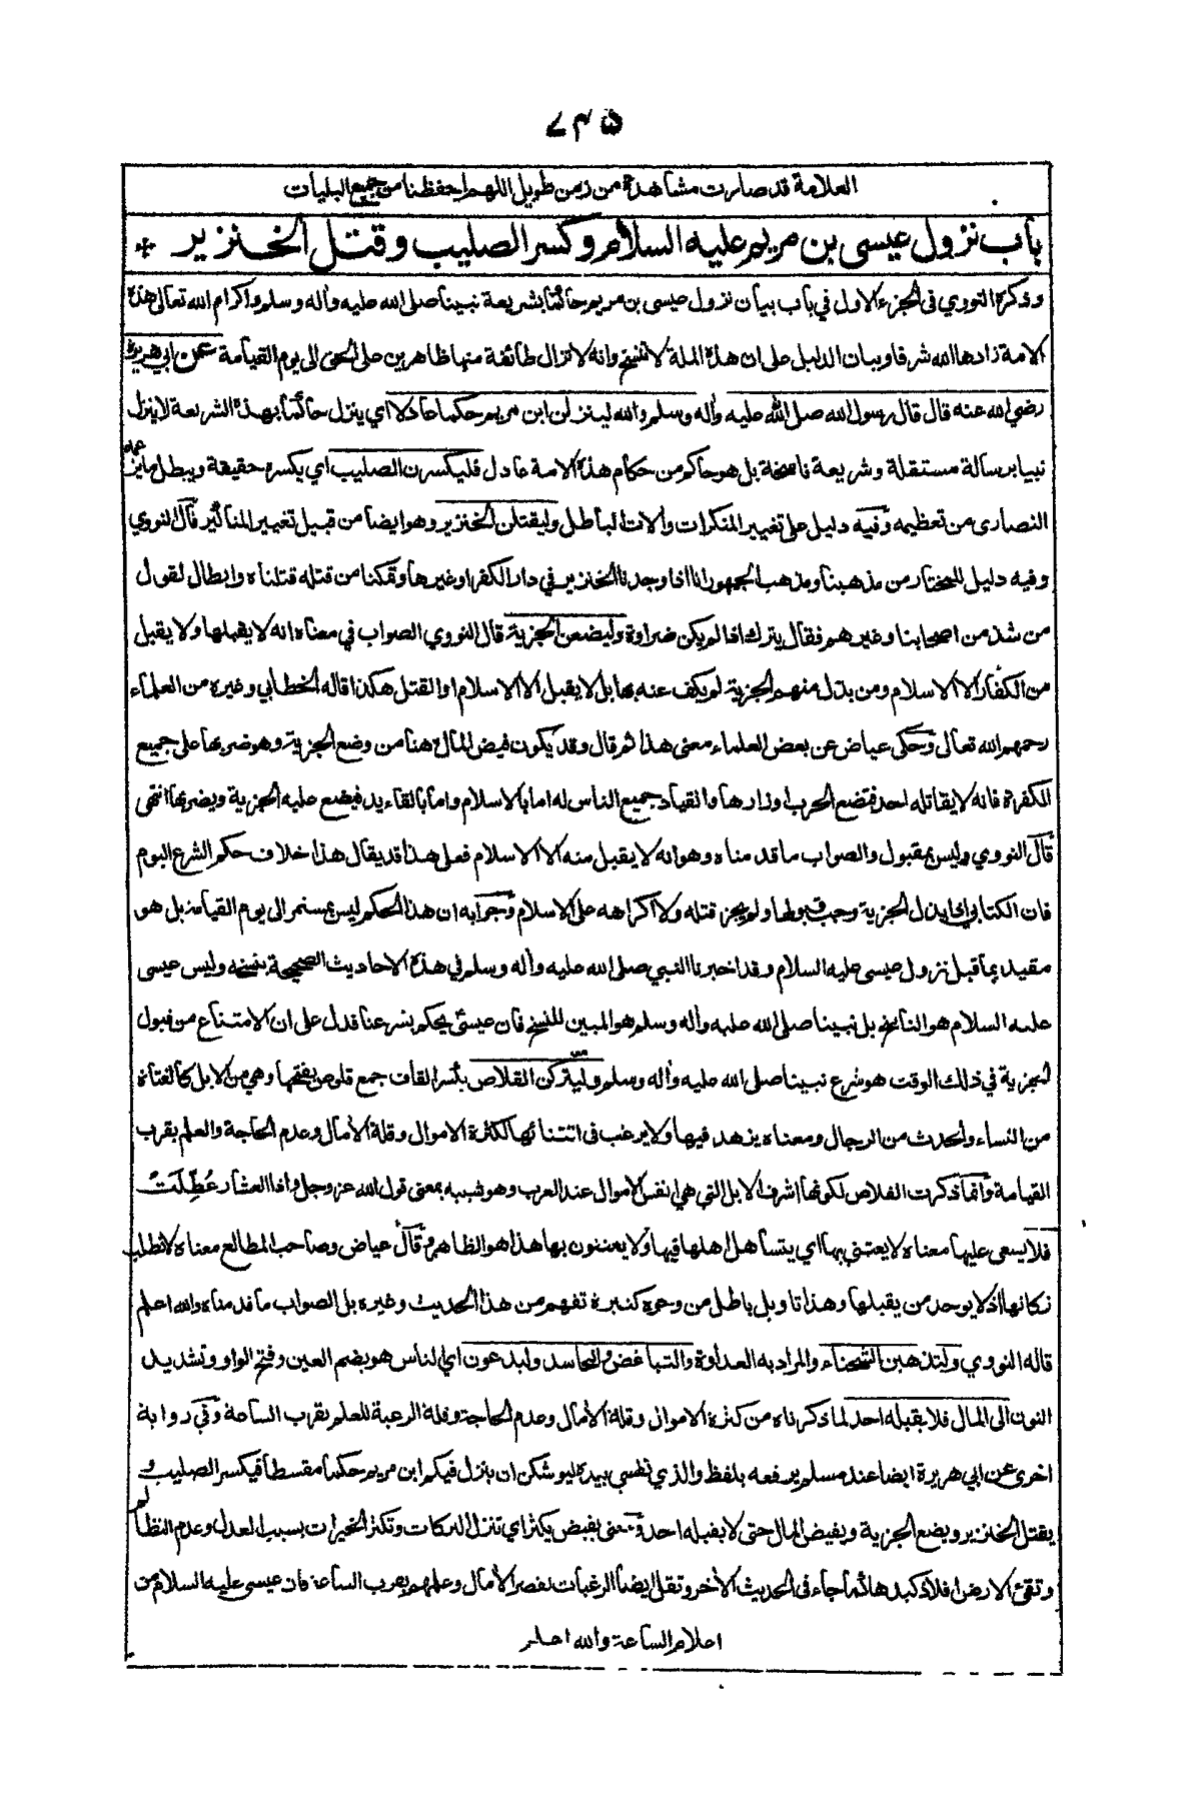 ۷۴۵
العلامة قد صارت مشاهدة من زمن طويل اللهم احفظنا من جميع البليات
باب نزول عيسى بن مريم عليه السلام وكسر الصليب وقتل الخنزير
وذكره النووي فى الجزء الاول في باب بيان نزول عيسى بن مريم حاكما بشريعة نبينا صلى الله عليه وأله وسلم واكرام الله تعالى هذه
الامة زادها الله شرفا وبيان الدليل على ان هذه الملة لا تنسخ وانه لا تزال طائفة منها ظاهرين على الحق الى يوم القيامة عن ابي هريرة
رضي الله عنه قال قال رسول الله صلى الله عليه وأله وسلم والله لينزلن ابن مريم حكما عادلا اي ينزل حاكما بهذه الشريعة لا ينزل
نبيا برسالة مستقلة وشريعة ناسخة بل هو حاكم من حكام هذه الامة عادل فليكسرن الصليب اي يكسره حقيقة ويبطل ما يزعمه
النصارى من تعظيمه وفيه دليل على تغيير المنكرات وألات الباطل وليقتلن الخنزير وهو ايضا من قبيل تغيير المناكير قال النووي
وفيه دليل للمختار من مذهبنا ومذهب الجمهور انا اذا وجدنا الخنزير في دار الكفر او غيرها وتمكنا من قتله قتلناه وابطال لقول
من شذ من اصحابنا وغيرهم فقال يترك اذا لم يكن ضراوة وليضعن الجزية قال النووي الصواب في معناه انه لا يقبلها ولا يقبل
من الكفار الا الاسلام ومن بذل منهم الجزية لم يكف عنه بها بل لا يقبل الا الاسلام او القتل هكذا قاله الخطابي وغيره من العلماء
رحمهم الله تعالى وحكى عياض عن بعض العلماء معنى هذا ثم قال وقد يكون فيض المال هنا من وضع الجزية وهو ضربها على جميع
الكفرة فانه لا يقاتله احد فتضع الحرب اوزارها وانقياد جميع الناس له اما بالاسلام واما بالقاء يد فيضع عليه الجزية ويضربها انتهى
قال النووي وليس بمقبول والصواب ما قدمناه وهو انه لا يقبل منه الا الاسلام فعلى هذا قد يقال هذا خلاف حكم الشرع اليوم
فان الكتابي اذا بذل الجزية وجب قبولها ولم يجز قتله ولا اكراهه على الاسلام وجوابه ان هذا الحكم ليس بمستمر الى يوم القيامة بل هو
مقيد بما قبل نزول عيسى عليه السلام وقد اخبرنا النبي صلى الله عليه وأله وسلم في هذه الاحاديث الصحيحة بنسخه وليس عيسى
عليه السلام هو الناسخ بل نبينا صلى الله عليه وأله وسلم هو المبين للنسخ فان عيسى يحكم بشرعنا فدل على ان الامتناع من قبول
الجزية في ذلك الوقت هو شرع نبينا صلى الله عليه وأله وسلم وليتركن القلاص بكسر القاف جمع قلوص بفتحها وهي من الابل كالفتاة
من النساء والحدث من الرجال ومعناه يزهد فيها ولا يرغب فى اقتنائها لكثرة الاموال وقلة الأمال وعدم الحاجة والعلم بقرب
القيامة وانما ذكرت القلاص لكونها اشرف الابل التي هي انفس الاموال عند العرب وهو شبيه بمعنى قول الله عز وجل واذا العشار عُطِّلَتْ
فلا يسعى عليها معناه لا يعتني بها اي يتساهل اهلها فيها ولا يعتنون بها هذا هو الظاهر وقال عياض وصاحب المطالع معناه لا تطلب
زكاتها اذ لا يوجد من يقبلها وهذا تاويل باطل من وجوه كثيرة تفهم من هذا الحديث وغيره بل الصواب ما قدمناه والله اعلم
قاله النووي ولتذهبن الشحناء والمراد به العداوة والتباغض والتحاسد وليدعون اي الناس هو بضم العين وفتح الواو وتشديد
النون الى المال فلا يقبله احد لما ذكرناه من كثرة الاموال وقلة الأمال وعدم الحاجة وقلة الرغبة للعلم بقرب الساعة وفي رواية
اخرى عن ابي هريرة ايضا عند مسلم يرفعه بلفظ والذي نفسي بيده ليوشكن ان ينزل فيكم ابن مريم حكما مقسطا فيكسر الصليب و
يقتل الخنزير ويضع الجزية ويفيض المال حتى لا يقبله احد ومعنى يفيض يكثر اي تنزل البركات وتكثر الخيرات بسبب العدل وعدم التظالم
وتقئ الارض افلاذ كبدها كما جاء فى الحديث الأخر وتقل ايضا الرغبات لقصر الأمال وعلمهم بقرب الساعة فان عيسى عليه السلام من
اعلام الساعة والله اعلم